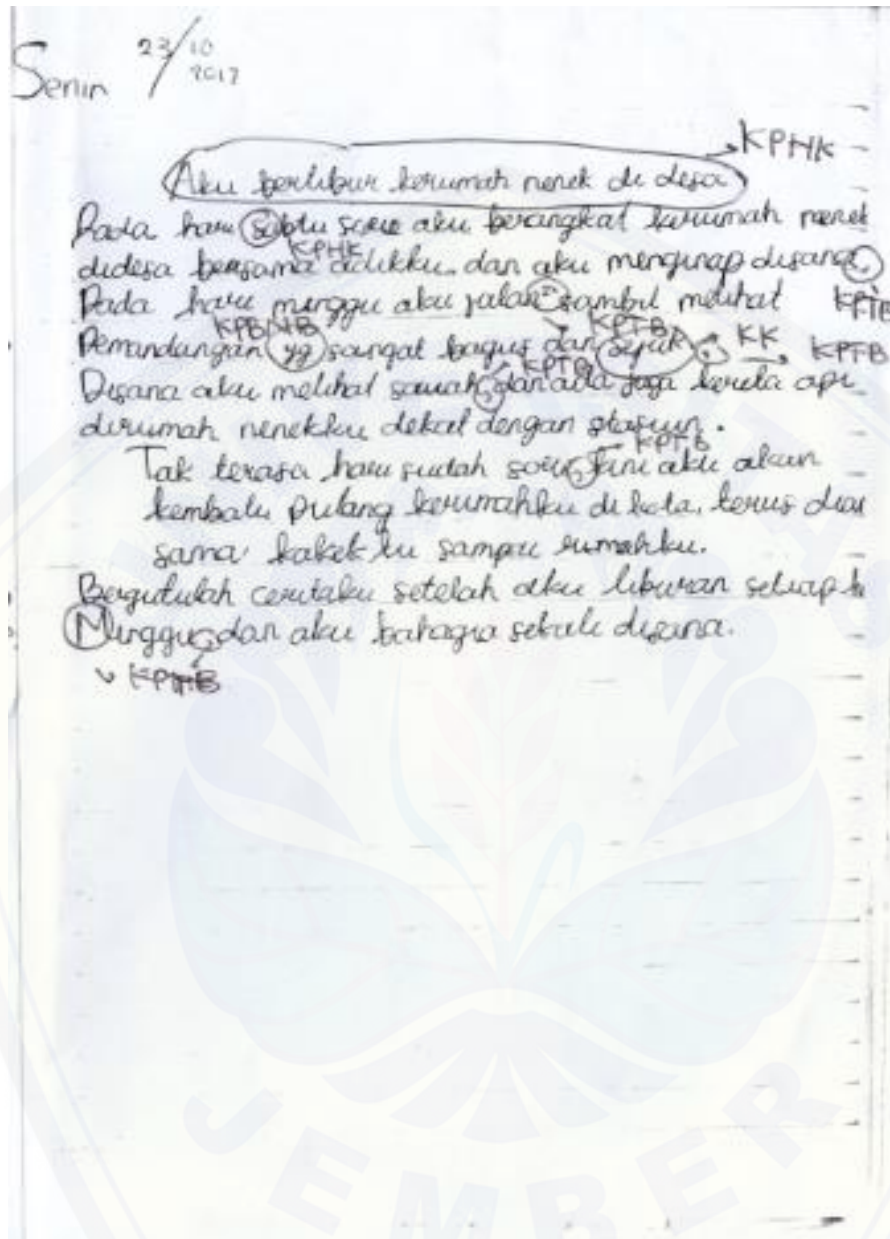 Senin 23/10 2017
KPHK
Aku berlibur kerumah nenek di desa
Pada hari sabtu sore aku berangkat kerumah nenek
KPHK
didesa bersama adikku. dan aku menginap disana.
Pada hari minggu aku jalan" sambil melihat KPTB
KPBNB KPTB
Pemandangan yg sangat bagus dan sejuk. KK KPTB
KPTB
Disana aku melihat sawah, dan ada juga kereta api
dirumah nenekku dekat dengan stasiun.
KPTB
Tak terasa hari sudah sore, Jani aku akan
kembali pulang kerumahku di kota. terus
sama kakekku sampai rumahku.
Begitulah ceritaku setelah aku liburan setiap
Minggu, dan aku bahagia sekali disana.
JEMBER